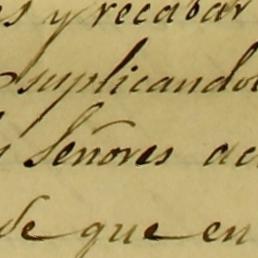 es y recabar
suplicando
Señores ac
de que en